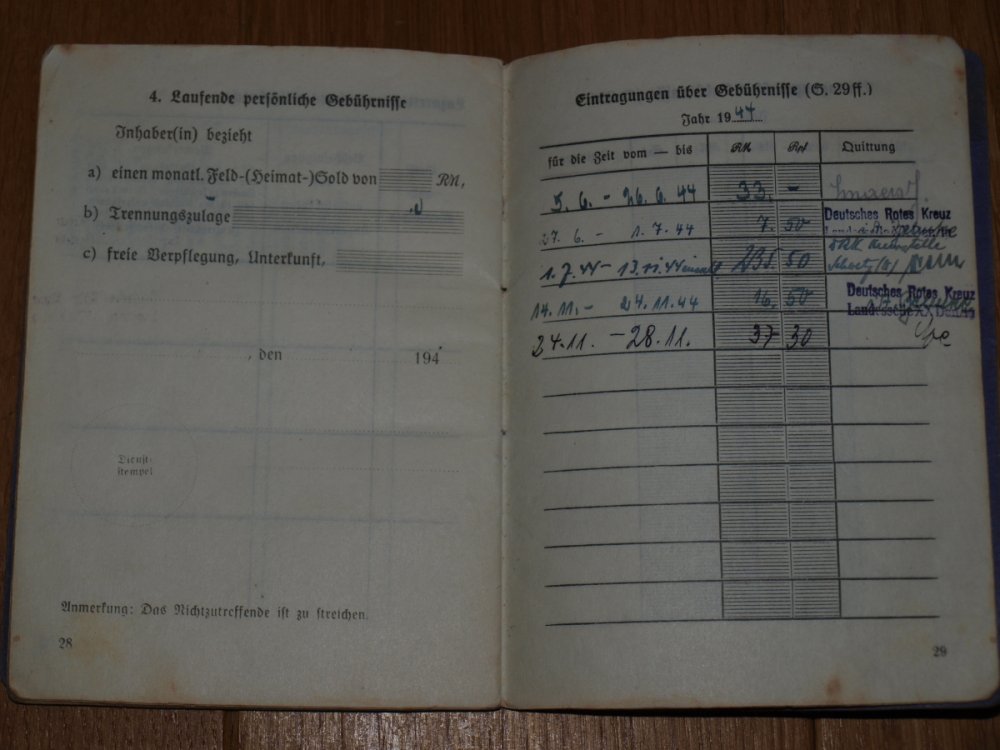 4. Laufende persönliche Gebührnisse
Inhaber(in) bezieht
a) einen monatl. Feld-(Heimat-)Sold von RM,
b) Trennungszulage
c) freie Verpflegung, Unterkunft,
, den 194
Dienst-
stempel
Anmerkung: Das Nichtzutreffende ist zu streichen.
28
Eintragungen über Gebührnisse (S. 29 ff.)
Jahr 1944
für die Zeit vom — bis RM Rpf Quittung
5. 6. - 26. 6. 44 33. -
27. 6. - 1. 7. 44 7. 50 Deutsches Rotes Kreuz
1. 7. 44 - 13. 11. 44 235 50 DRK
14. 11. - 24. 11. 44 16. 50 Deutsches Rotes Kreuz
24. 11. - 28. 11. 37 30
29